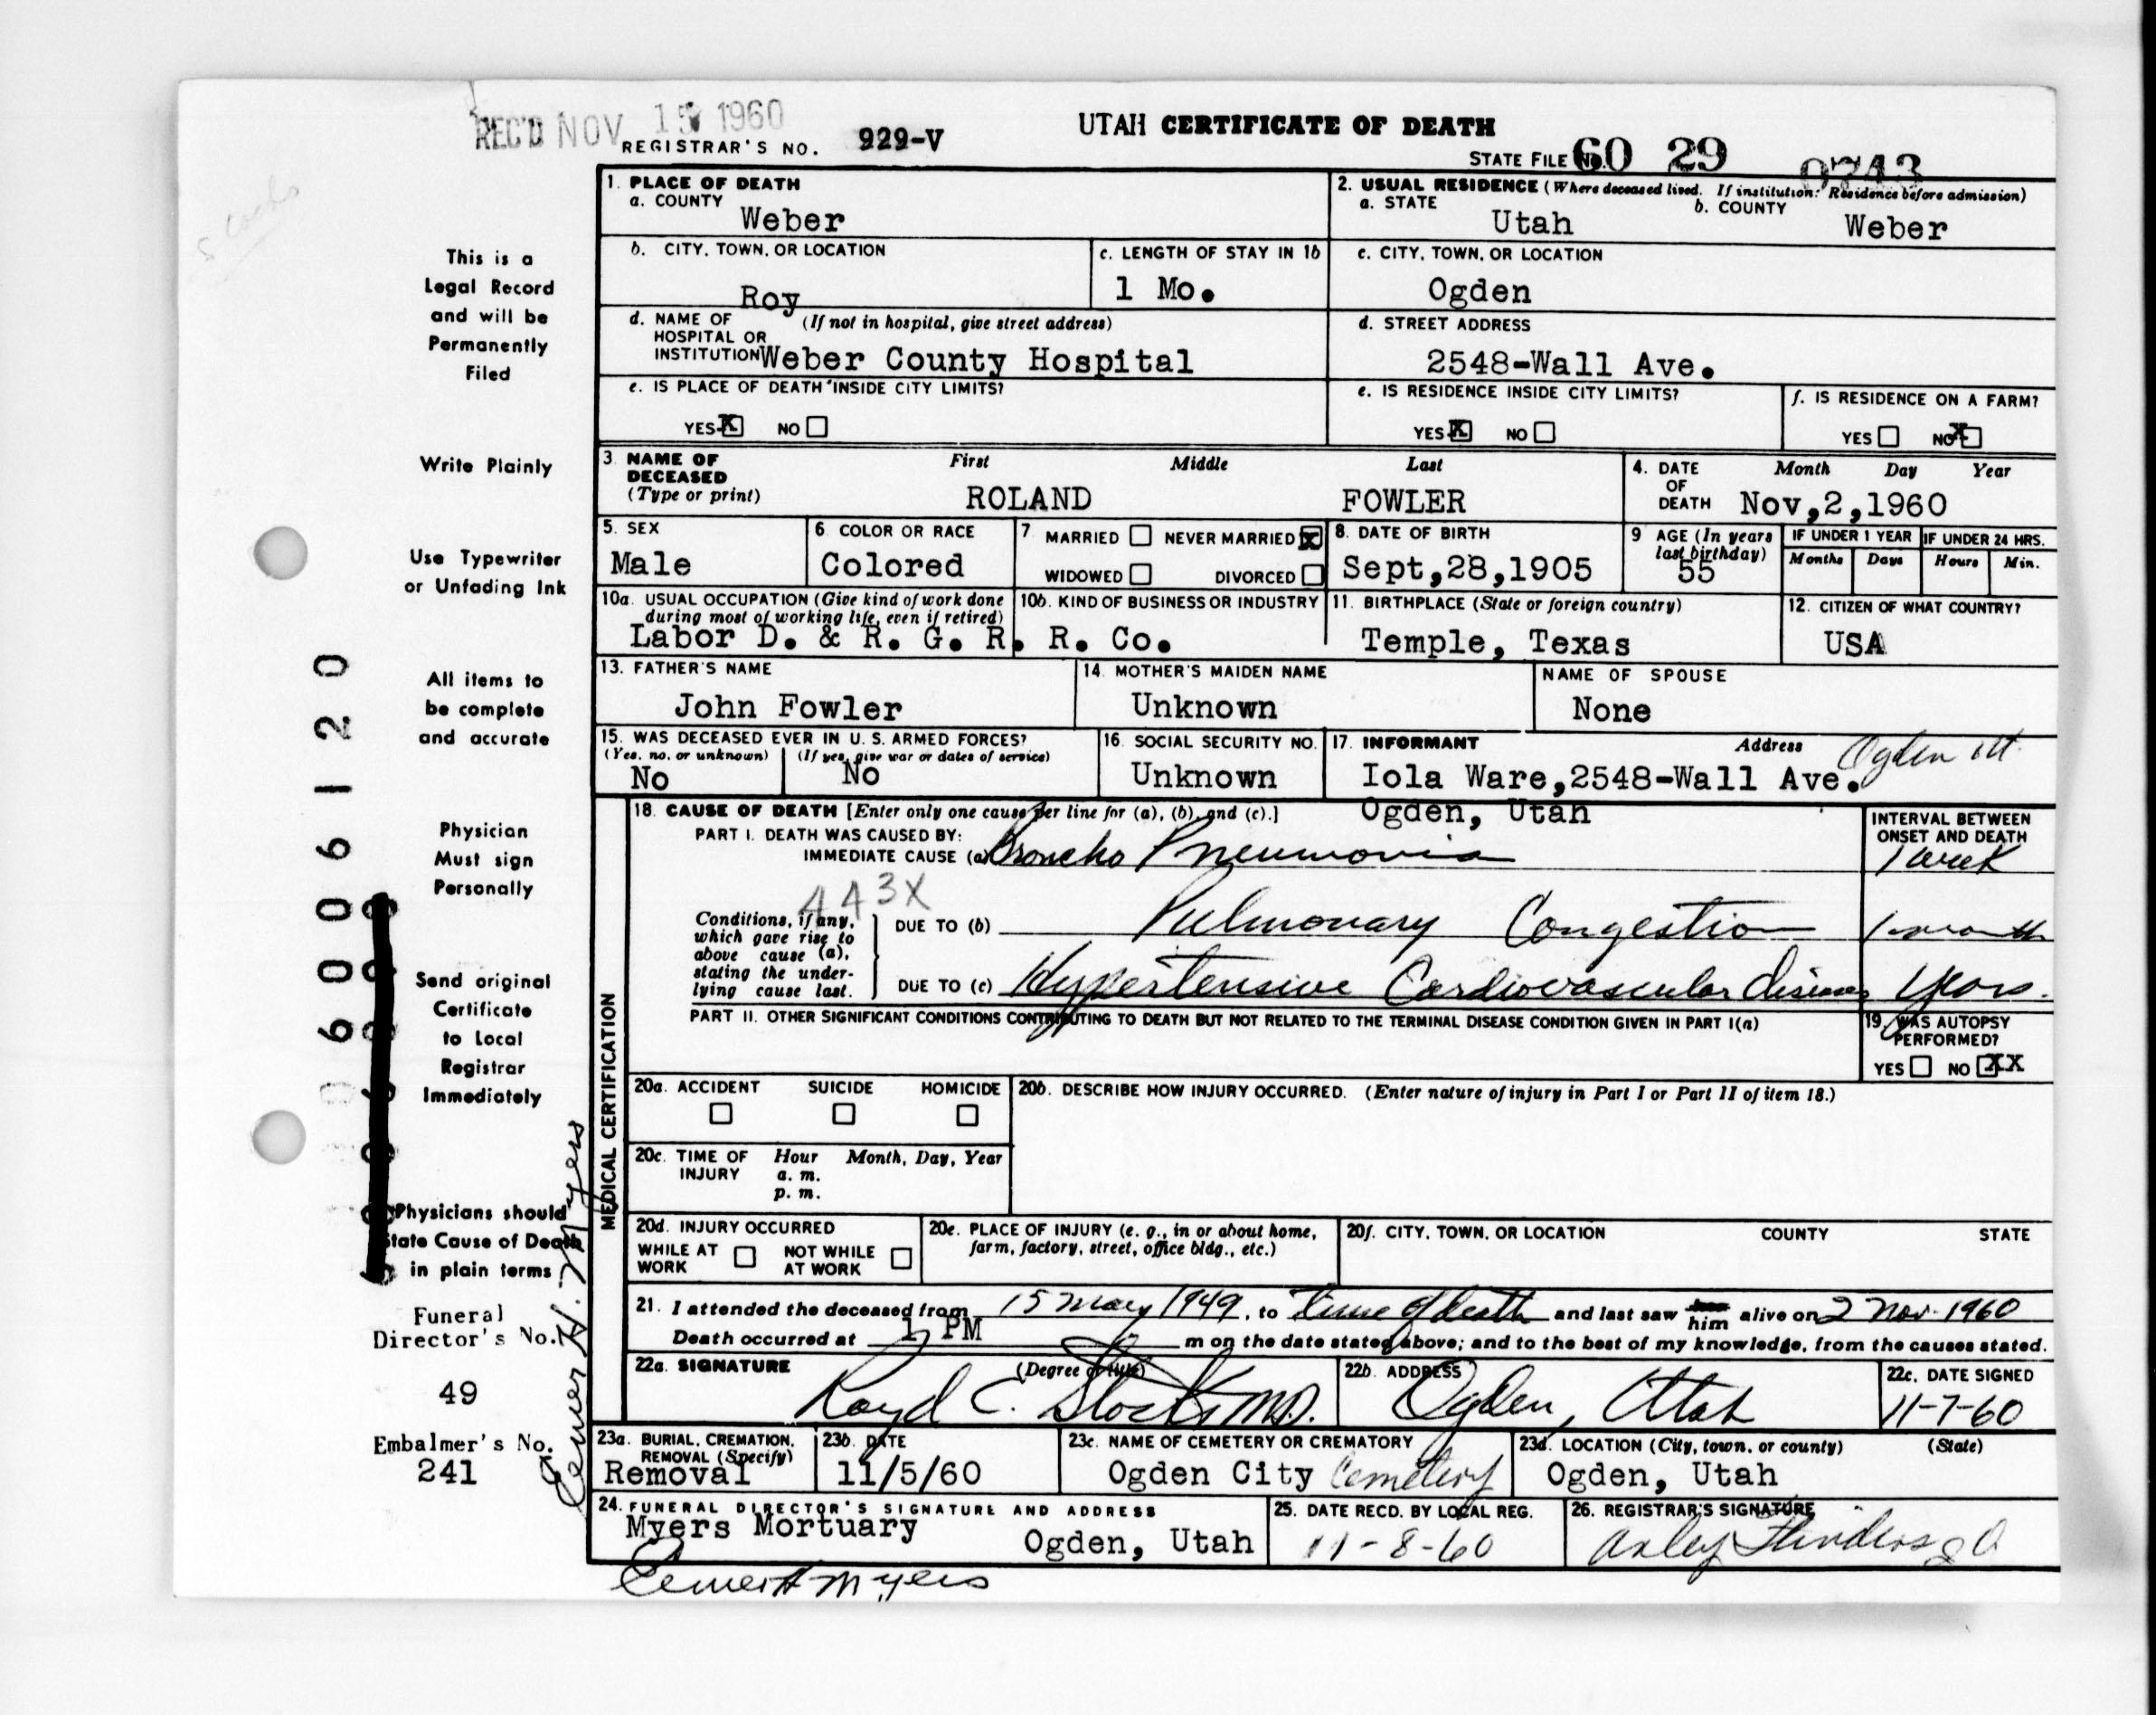 REC'D NOV 15 1960
REGISTRAR'S NO. 929-V
UTAH CERTIFICATE OF DEATH
STATE FILE NO. 60 29 0743
1. PLACE OF DEATH
a. COUNTY
Weber
2. USUAL RESIDENCE (Where deceased lived. If institution: Residence before admission)
a. STATE
Utah
b. COUNTY
Weber
b. CITY, TOWN, OR LOCATION
Roy
c. LENGTH OF STAY IN 1b
1 Mo.
c. CITY, TOWN, OR LOCATION
Ogden
d. NAME OF HOSPITAL OR INSTITUTION (If not in hospital, give street address)
Weber County Hospital
d. STREET ADDRESS
2548-Wall Ave.
e. IS PLACE OF DEATH INSIDE CITY LIMITS?
YES X NO
e. IS RESIDENCE INSIDE CITY LIMITS?
YES X NO
f. IS RESIDENCE ON A FARM?
YES NO X
3. NAME OF DECEASED (Type or print)
First Middle Last
ROLAND FOWLER
4. DATE OF DEATH
Month Day Year
Nov,2,1960
5. SEX
Male
6. COLOR OR RACE
Colored
7. MARRIED NEVER MARRIED X
WIDOWED DIVORCED
8. DATE OF BIRTH
Sept,28,1905
9 AGE (In years last birthday)
55
IF UNDER 1 YEAR
Months Days
IF UNDER 24 HRS.
Hours Min.
10a. USUAL OCCUPATION (Give kind of work done during most of working life, even if retired)
10b. KIND OF BUSINESS OR INDUSTRY
Labor D. & R. G. R. R. Co.
11. BIRTHPLACE (State or foreign country)
Temple, Texas
12. CITIZEN OF WHAT COUNTRY?
USA
13. FATHER'S NAME
John Fowler
14. MOTHER'S MAIDEN NAME
Unknown
NAME OF SPOUSE
None
15. WAS DECEASED EVER IN U. S. ARMED FORCES?
(Yes, no, or unknown) (If yes, give war or dates of service)
No No
16. SOCIAL SECURITY NO.
Unknown
17. INFORMANT Address
Iola Ware,2548-Wall Ave. Ogden Ut
Ogden, Utah
MEDICAL CERTIFICATION
18. CAUSE OF DEATH [Enter only one cause per line for (a), (b), and (c).]
PART I. DEATH WAS CAUSED BY:
IMMEDIATE CAUSE (a) Broncho Pneumonia
INTERVAL BETWEEN ONSET AND DEATH
1 week
443X
Conditions, if any, which gave rise to above cause (a), stating the underlying cause last.
DUE TO (b) Pulmonary Congestion 1 month
DUE TO (c) Hypertensive Cardiovascular disease years.
PART II. OTHER SIGNIFICANT CONDITIONS CONTRIBUTING TO DEATH BUT NOT RELATED TO THE TERMINAL DISEASE CONDITION GIVEN IN PART I(a)
19. WAS AUTOPSY PERFORMED?
YES NO XX
20a. ACCIDENT SUICIDE HOMICIDE
20b. DESCRIBE HOW INJURY OCCURRED. (Enter nature of injury in Part I or Part II of item 18.)
20c. TIME OF INJURY Hour Month, Day, Year
a. m.
p. m.
20d. INJURY OCCURRED
WHILE AT WORK NOT WHILE AT WORK
20e. PLACE OF INJURY (e. g., in or about home, farm, factory, street, office bldg., etc.)
20f. CITY, TOWN, OR LOCATION COUNTY STATE
21. I attended the deceased from 15 May 1949, to time of death and last saw him alive on 2 Nov. 1960
Death occurred at 1 PM m on the date stated above; and to the best of my knowledge, from the causes stated.
22a. SIGNATURE (Degree or title)
22b. ADDRESS
Ogden, Utah
22c. DATE SIGNED
11-7-60
23a. BURIAL, CREMATION, REMOVAL (Specify)
Removal
23b. DATE
11/5/60
23c. NAME OF CEMETERY OR CREMATORY
Ogden City Cemetery
23d. LOCATION (City, town, or county) (State)
Ogden, Utah
24. FUNERAL DIRECTOR'S SIGNATURE AND ADDRESS
Myers Mortuary
Ogden, Utah
25. DATE RECD. BY LOCAL REG.
11-8-60
26. REGISTRAR'S SIGNATURE
This is a
Legal Record
and will be
Permanently
Filed
Write Plainly
Use Typewriter
or Unfading Ink
All items to
be complete
and accurate
Physician
Must sign
Personally
Send original
Certificate
to Local
Registrar
Immediately
Physicians should
State Cause of Death
in plain terms
Funeral
Director's No.
49
Embalmer's No.
241
6006120